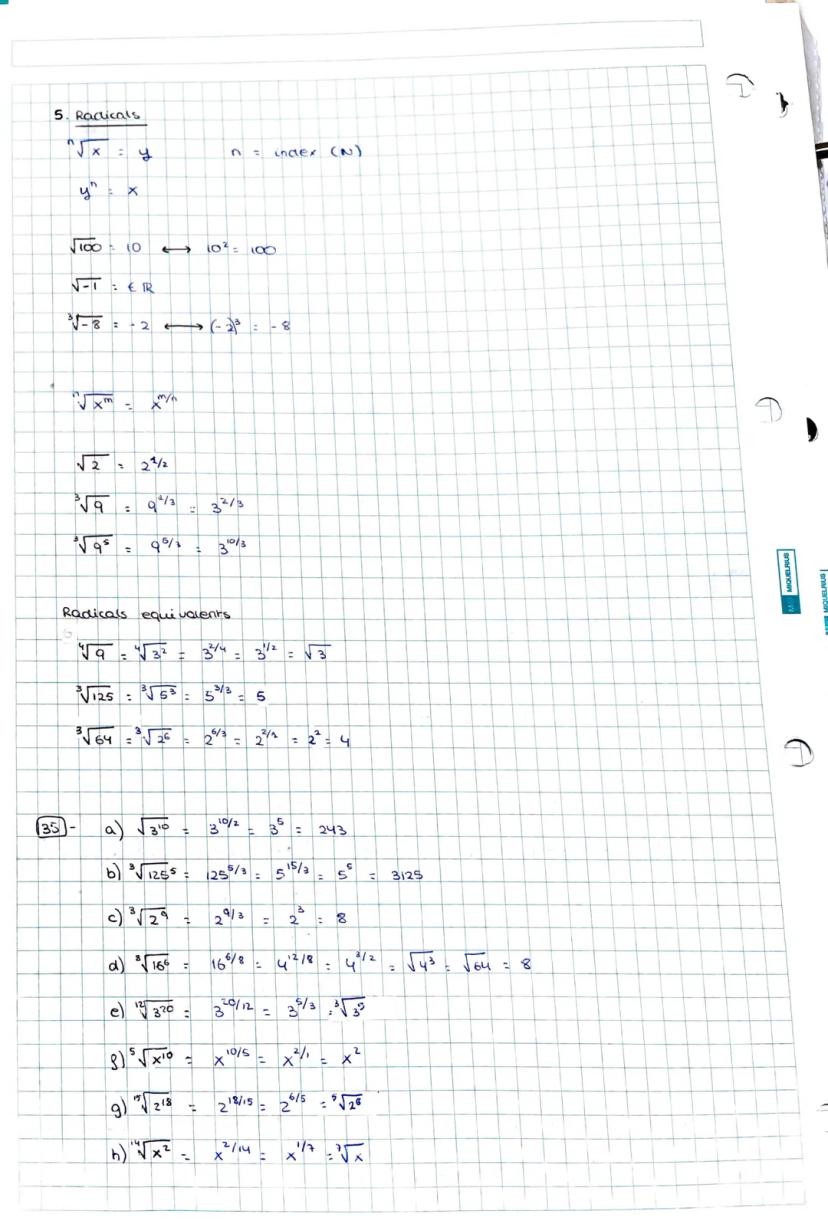 5. Radicals
ⁿ√x = y n = index (N)
yⁿ = x
√100 = 10 ⟷ 10² = 100
√-1 = ∈ ℝ
³√-8 = -2 ⟷ (-2)³ = -8
ⁿ√xᵐ = x^m/n
√2 = 2^1/2
³√9 = 9^1/3 = 3^2/3
³√9⁵ = 9^5/3 = 3^10/3
Radicals equivalents
⁴√9 = ⁴√3² = 3^2/4 = 3^1/2 = √3
³√125 = ³√5³ = 5^3/3 = 5
³√64 = ³√2⁶ = 2^6/3 = 2^2/1 = 2² = 4
35- a) √3¹⁰ = 3^10/2 = 3⁵ = 243
b) ³√125⁵ = 125^5/3 = 5^15/3 = 5⁵ = 3125
c) ³√2⁹ = 2^9/3 = 2³ = 8
d) ⁸√16⁶ = 16^6/8 = 4^12/8 = 4^3/2 = √4³ = √64 = 8
e) ¹²√3²⁰ = 3^20/12 = 3^5/3 = ³√3⁵
f) ⁵√x¹⁰ = x^10/5 = x^2/1 = x²
g) ¹⁵√2¹⁸ = 2^18/15 = 2^6/5 = ⁵√2⁶
h) ¹⁴√x² = x^2/14 = x^1/7 = ⁷√x
MIQUELRIUS
MIQUELRIUS